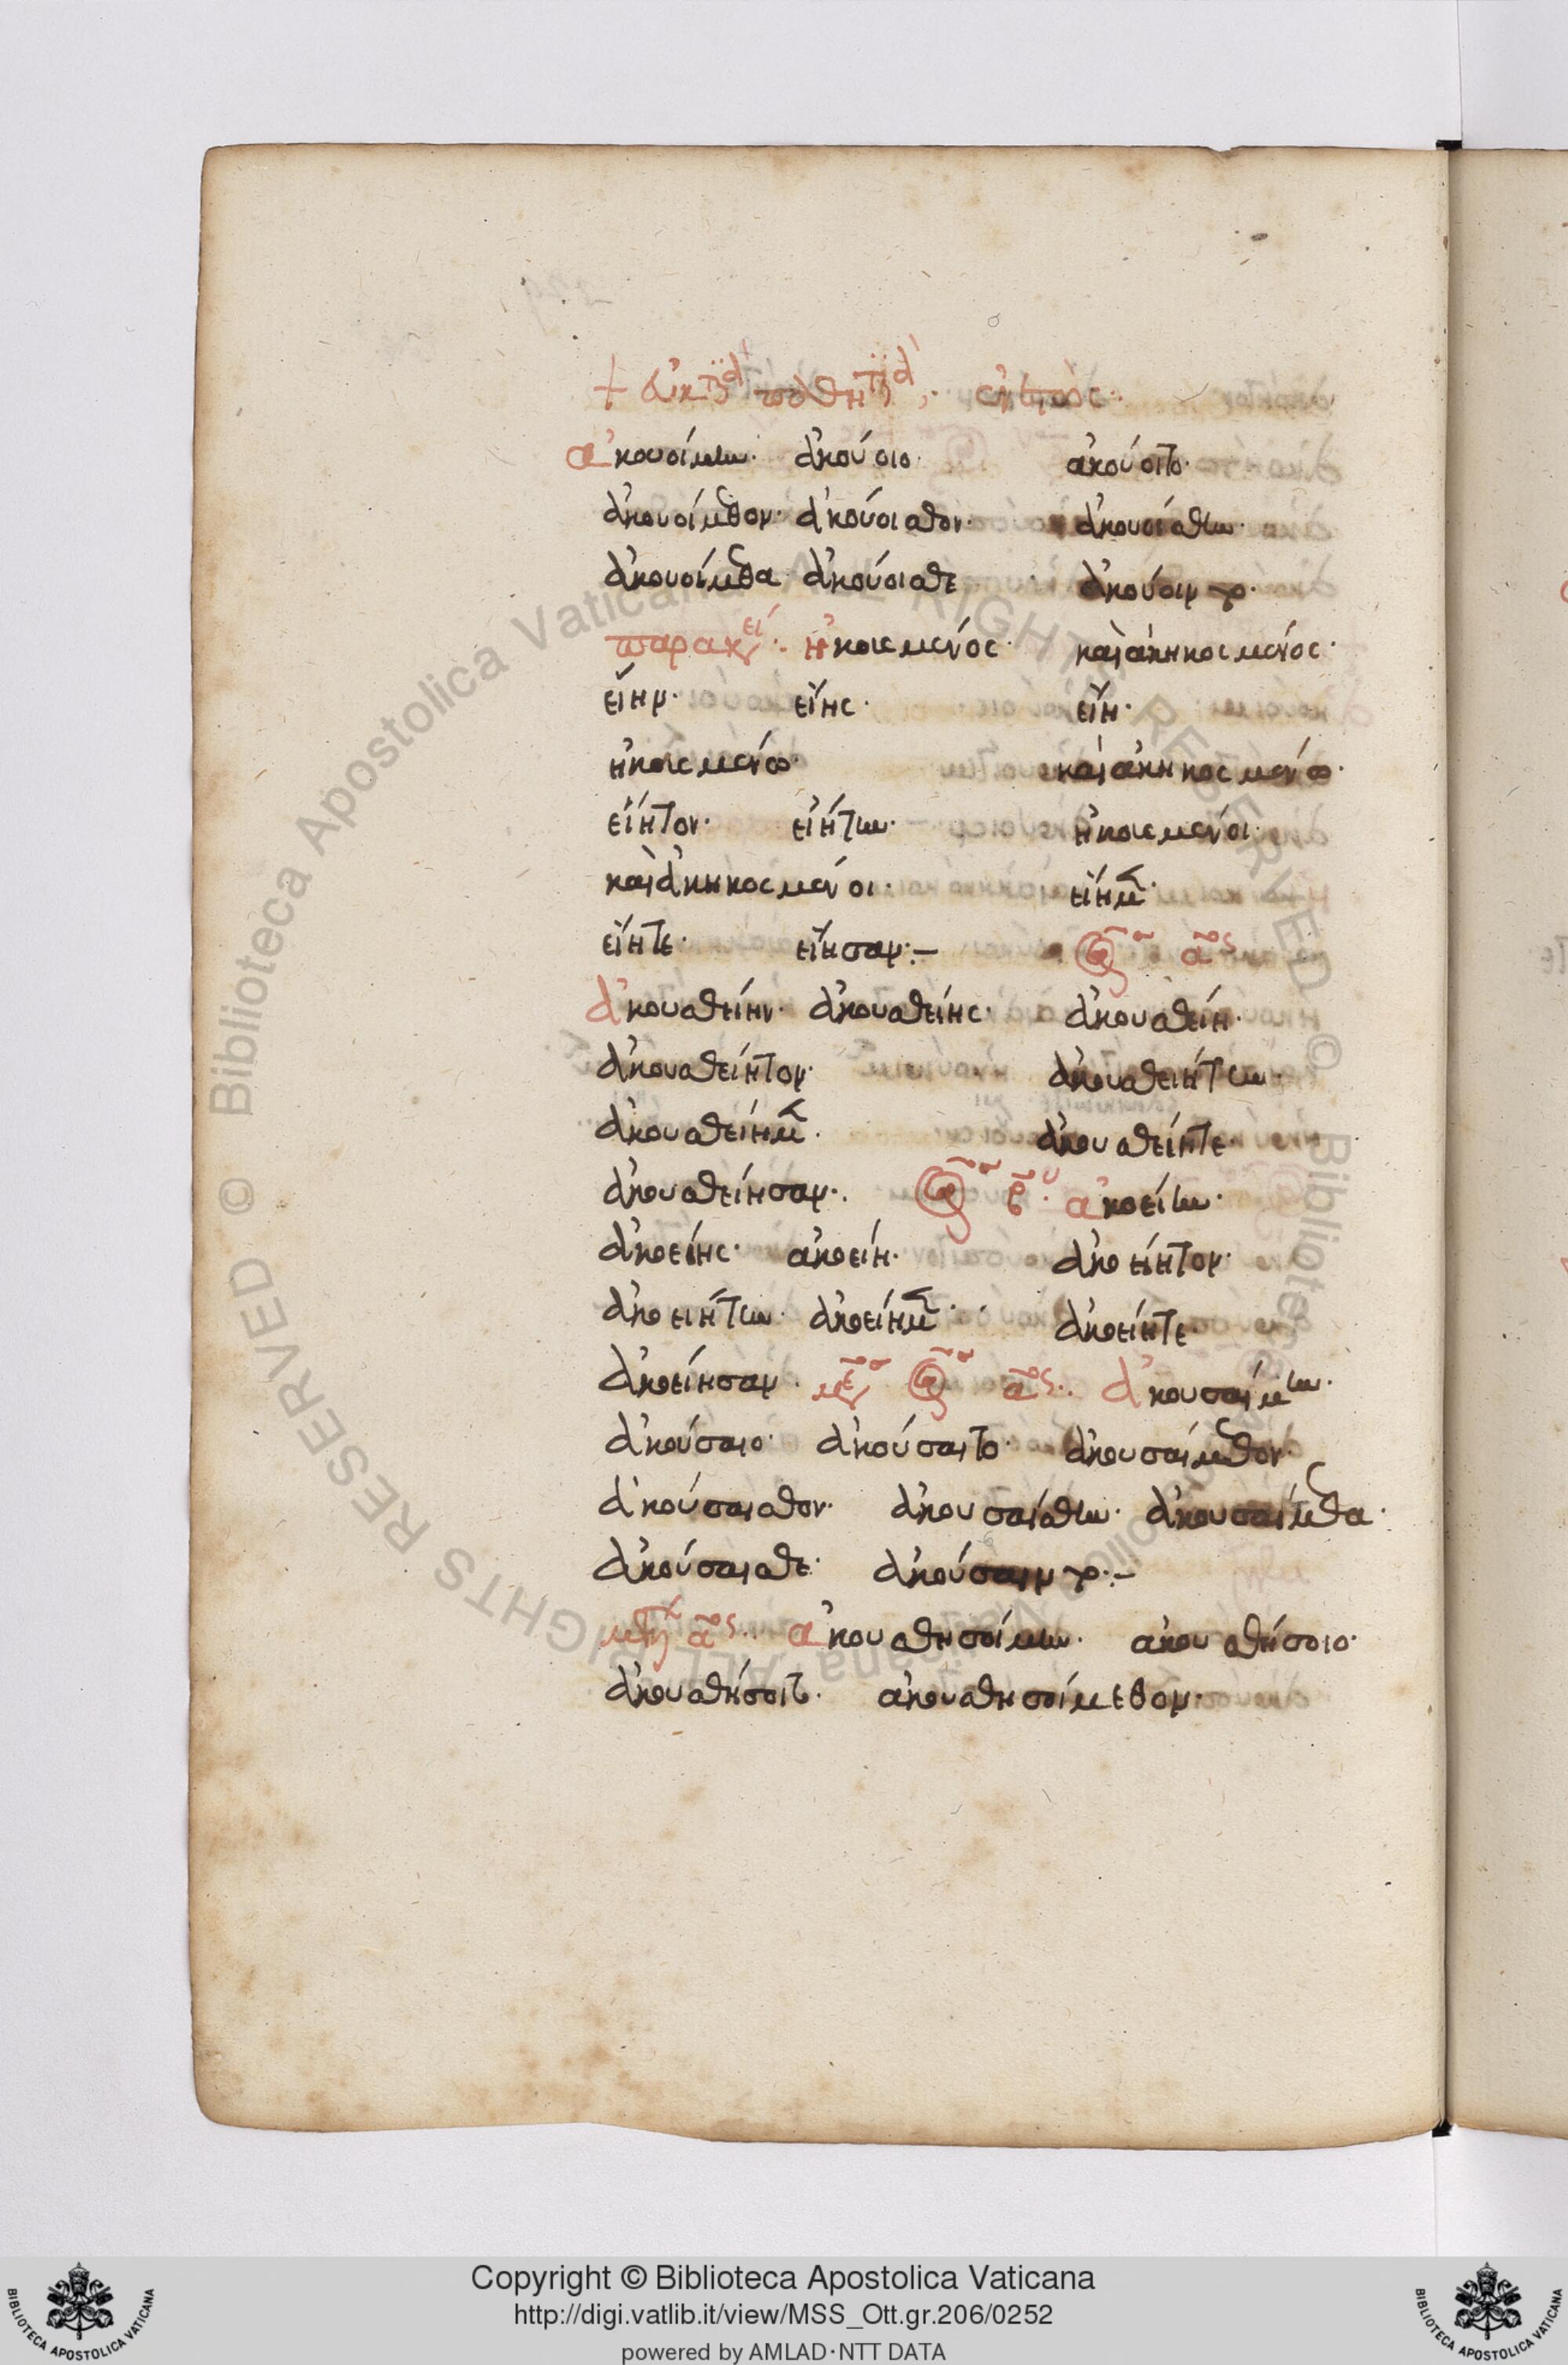 ἀκουοίμην· ἀκούοιο· ἀκούοιτο·
ἀκουοίμεθον· ἀκούοισθον· ἀκουοίσθην·
ἀκουοίμεθα ἀκούοισθε ἀκούοιντο·
παρακει ἠκουσμένος· καὶ ἀκηκοσμένος·
εἴην· εἴης· εἴη·
ἠκουσμένω· καὶ ἀκηκοσμένω·
εἴητον· εἰήτην· ἠκουσμένοι·
καὶ ἀκηκοσμένοι· εἴημεν·
εἴητε· εἴησαν:—
ἀκουσθείην· ἀκουσθείης· ἀκουσθείη·
ἀκουσθείητον· ἀκουσθειήτην·
ἀκουσθείημεν· ἀκουσθείητε·
ἀκουσθείησαν· ἀκοείην·
ἀκοείης· ἀκοείη· ἀκοείητον·
ἀκοειήτην· ἀκοείημεν· ἀκοείητε·
ἀκοείησαν· ἀκουσαίμην·
ἀκούσαιο· ἀκούσαιτο· ἀκουσαίμεθον·
ἀκούσαισθον· ἀκουσαίσθην· ἀκουσαίμεθα·
ἀκούσαισθε· ἀκούσαιντο:—
ἀκουσθησοίμην· ἀκουσθήσοιο·
ἀκουσθήσοιτο· ἀκουσθησοίμεθον·
Copyright © Biblioteca Apostolica Vaticana
http://digi.vatlib.it/view/MSS_Ott.gr.206/0252
powered by AMLAD·NTT DATA
BIBLIOTECA APOSTOLICA VATICANA
BIBLIOTECA APOSTOLICA VATICANA